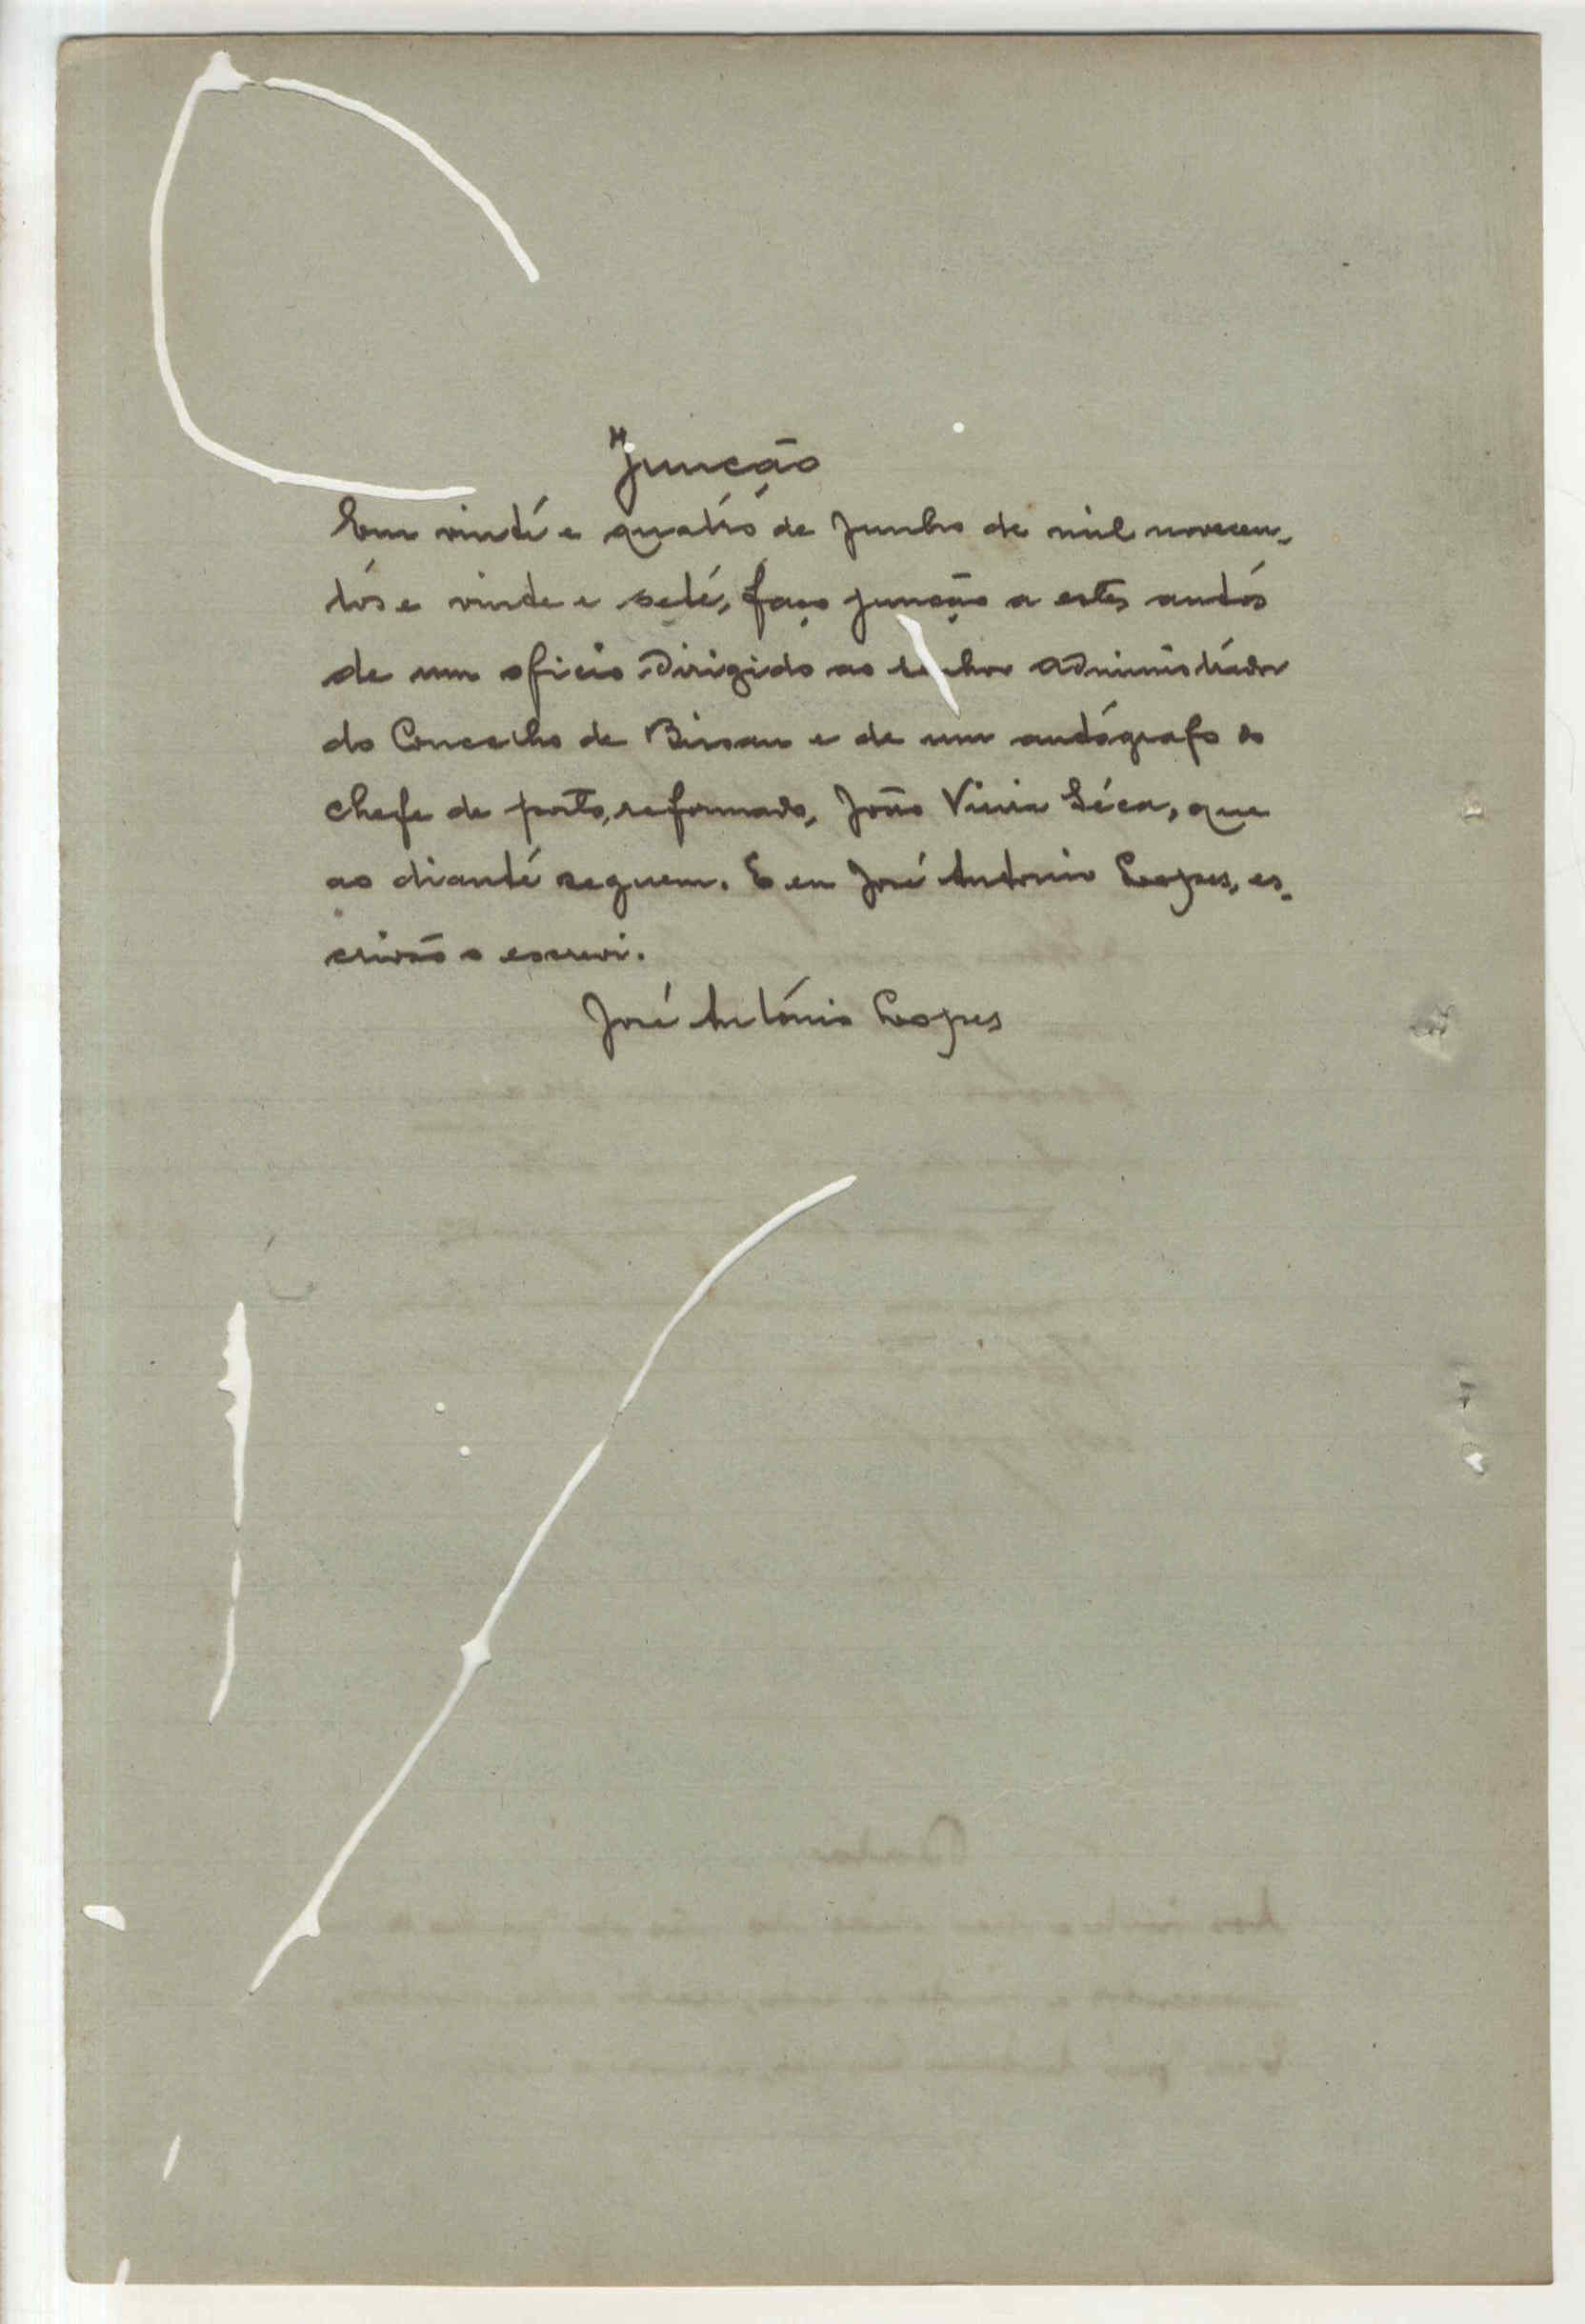 Juncção
Em vinte e quatro de Junho de mil novecen-
tos e vinde e sete, faço junção a estes autos
de um oficio dirigido ao senhor Administrador
do Concelho de Bissau e de um autógrafo do
chefe de posto, reformado, João Vieira Séca, que
ao diante seguem. E eu José Antonio Lopes, es-
crivão o escrevi.
José António Lopes